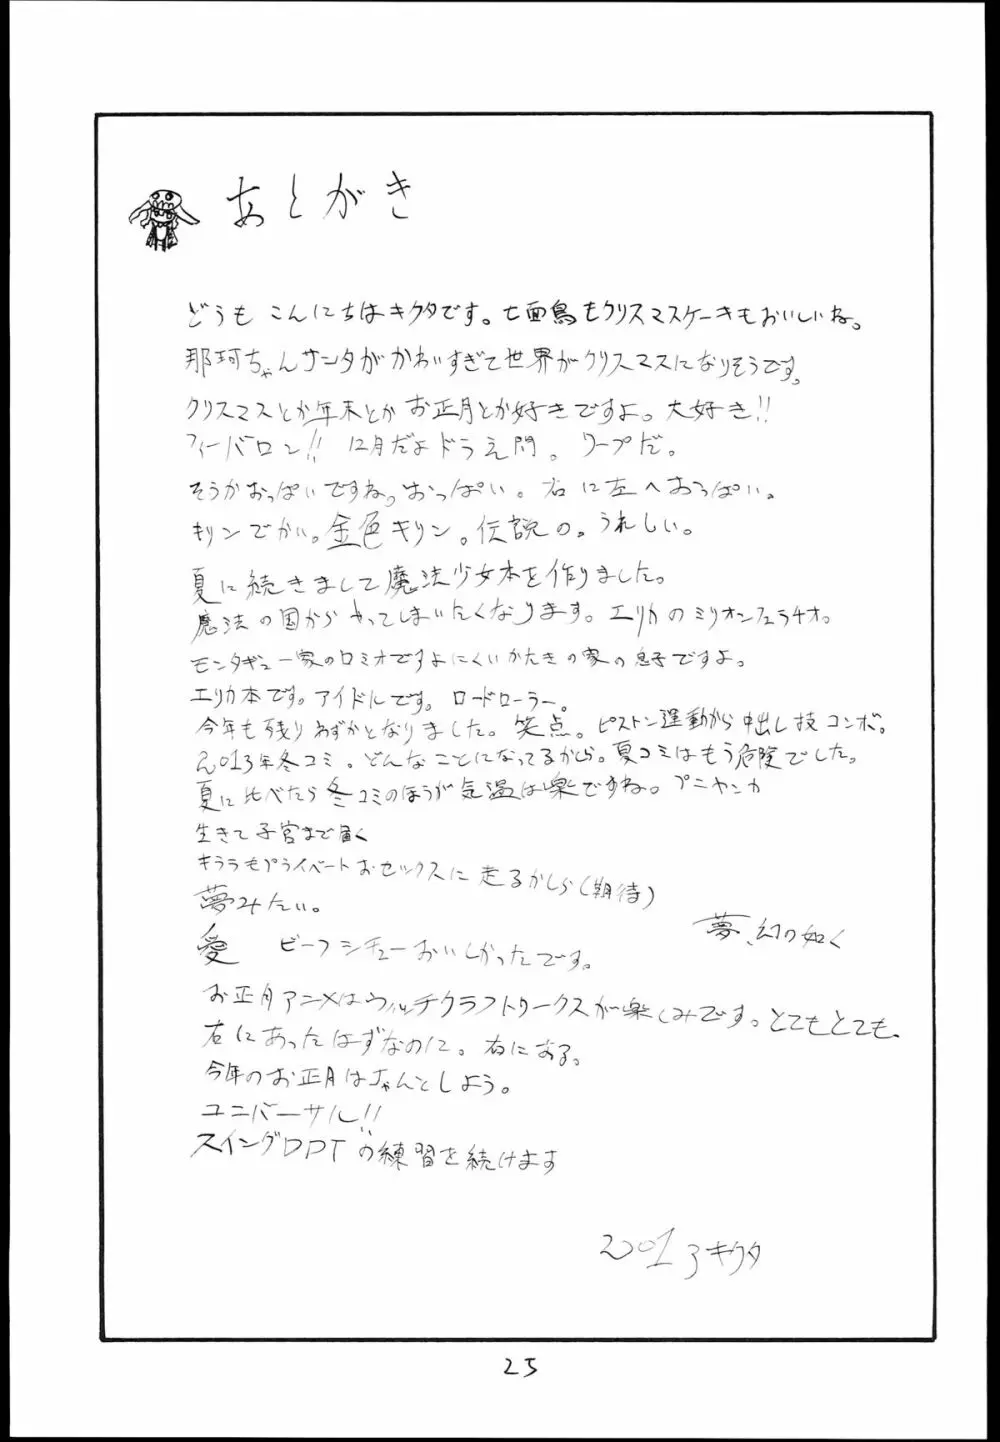 あとがき
どうも こんにちはキクタです。七面鳥もクリスマスケーキもおいしいね。
那珂ちゃんサンタがかわいすぎて世界がクリスマスになりそうです。
クリスマスとか年末とかお正月とか好きですよ。大好き!!
フィーバロン!! 12月だよドラえ門。ワープだ。
そうかおっぱいですね。おっぱい。右に左へおっぱい。
キリンでかい。金色キリン。伝説の。うれしい。
夏に続きまして魔法少女本を作りました。
魔法の国からやってしまいたくなります。エリカのミリオンフェラチオ。
モンタギュー家のロミオですよにくいかたきの家の息子ですよ。
エリカ本です。アイドルです。ロードローラー。
今年も残りわずかとなりました。笑点。ピストン運動から中出し技コンボ。
2013年冬コミ。どんなことになってるかしら。夏コミはもう危険でした。
夏に比べたら冬コミのほうが気温は楽ですね。プニヤンカ
生きて子宮まで届く
キララもプライベートおセックスに走るかしら(期待)
夢みたい。
夢、幻の如く
愛 ビーフシチューおいしかったです。
お正月アニメはウィッチクラフトワークスが楽しみです。とてもとても、
右にあったはずなのに。右にある。
今年のお正月はちゃんとしよう。
ユニバーサル!!
スイングDDTの練習を続けます
2013 キクタ
25